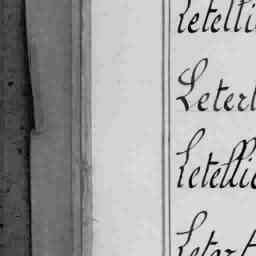 Letelli
Letert
Letellie
Letert